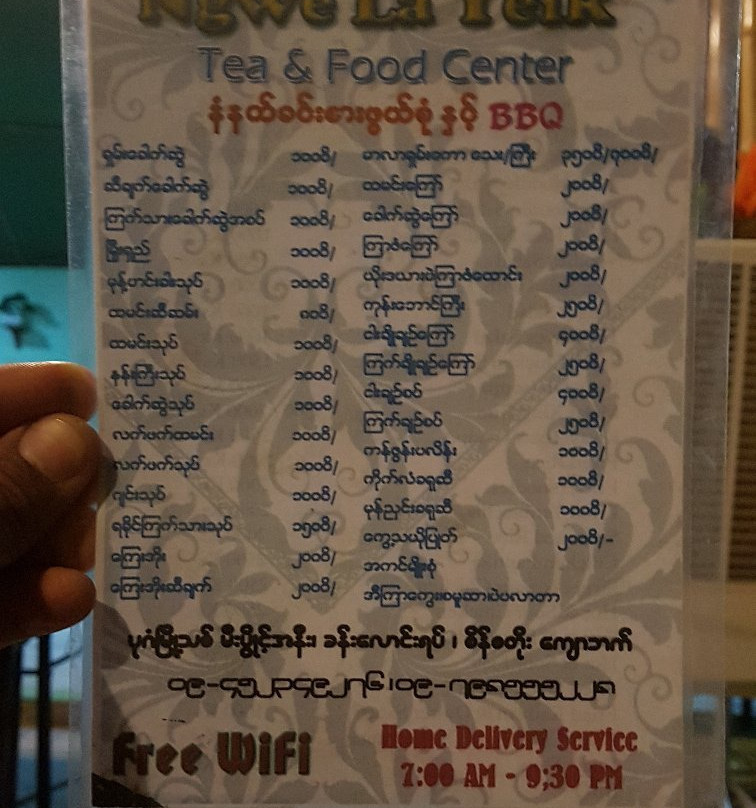 Ngwe La Yeik
Tea & Food Center
နံနက်ခင်းစားဖွယ်စုံ နှင့် BBQ
ရှမ်းခေါက်ဆွဲ ၁၀၀၀ိ/
ဆီချက်ခေါက်ဆွဲ ၁၀၀၀ိ/
ကြက်သားခေါက်ဆွဲအစပ် ၁၀၀၀ိ/
မြီးရှည် ၁၀၀၀ိ/
မုန့်ဟင်းခါးသုပ် ၁၀၀၀ိ/
ထမင်းဆီဆမ်း ၈၀၀ိ/
ထမင်းသုပ် ၁၀၀၀ိ/
နန်းကြီးသုပ် ၁၀၀၀ိ/
ခေါက်ဆွဲသုပ် ၁၀၀၀ိ/
လက်ဖက်ထမင်း ၁၀၀၀ိ/
လက်ဖက်သုပ် ၁၀၀၀ိ/
ဂျင်းသုပ် ၁၀၀၀ိ/
ရခိုင်ကြက်သားသုပ် ၁၅၀၀ိ/
ကြေးအိုး ၂၀၀၀ိ/
ကြေးအိုးဆီချက် ၂၀၀၀ိ/
မာလာရှမ်းကော သေး/ကြီး ၃၅၀၀ိ/၇၀၀၀ိ/
ထမင်းကြော် ၂၀၀၀ိ/
ခေါက်ဆွဲကြော် ၂၀၀၀ိ/
ကြာဇံကြော် ၂၀၀၀ိ/
ယိုးဒယားပဲကြာဇံထောင်း ၂၀၀၀ိ/
ကုန်းဘောင်ကြီး ၂၅၀၀ိ/
ငါးချိုချဉ်ကြော် ၄၀၀၀ိ/
ကြက်ချိုချဉ်ကြော် ၂၅၀၀ိ/
ငါးချဉ်စပ် ၄၀၀၀ိ/
ကြက်ချဉ်စပ် ၂၅၀၀ိ/
ကန်စွန်းပလိန်း ၁၀၀၀ိ/
ကိုက်လံခရုဆီ ၁၀၀၀ိ/
မုန်ညင်းခရုဆီ ၁၀၀၀ိ/
ကွေ့သယိုပြုတ် ၂၀၀၀ိ/-
အကင်မျိုးစုံ
အီကြာကွေး၊စမူဆာ၊ပဲပလာတာ
ပုဂံမြို့သစ် မီးပွိုင့်အနီး၊ ခန်းလောင်းရပ် ၊ စိန်စတိုး ကျောဘက်
၀၉-၄၅၂၃၄၉၂၇၆၊၀၉-၇၉၁၅၅၅၂၂၈
Free WiFi
Home Delivery Service
7:00 AM - 9;30 PM